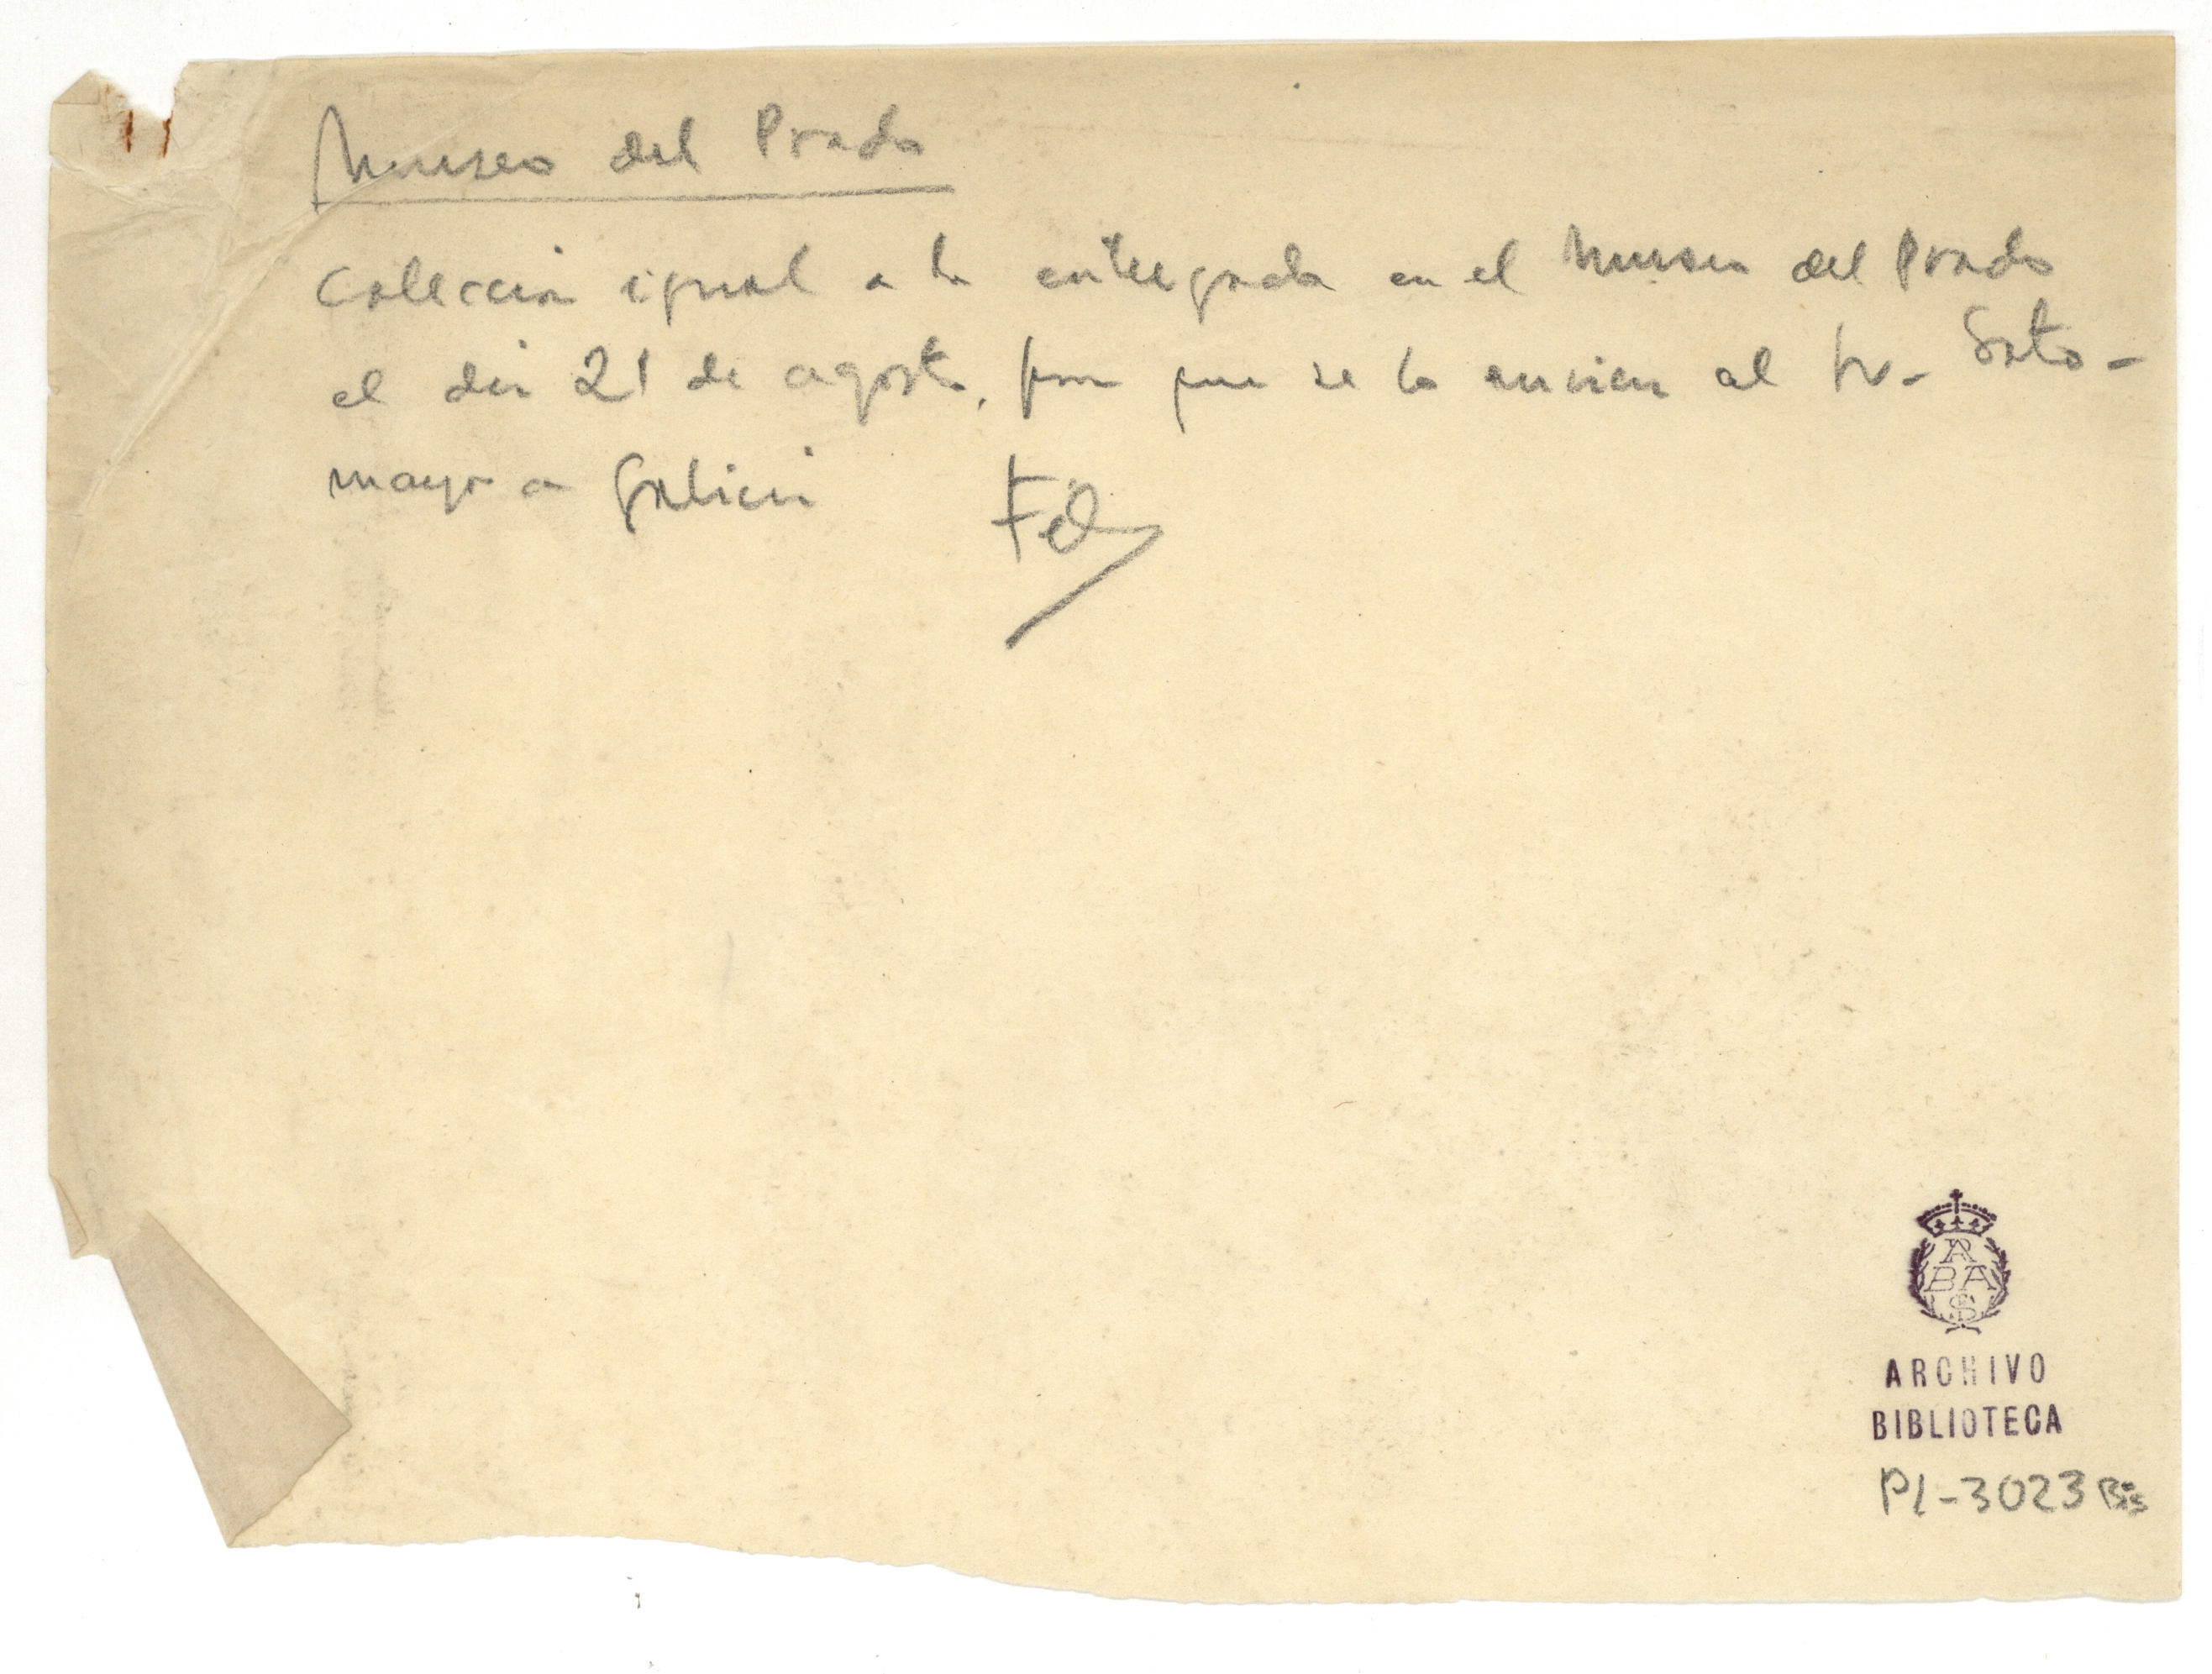 Museo del Prado
Colección igual a la entregada en el Museo del Prado
el día 21 de agosto, para que se la envíen al Sr. Soto-
mayor a Galicia
R
A
BA
S
ARCHIVO
BIBLIOTECA
Pl-3023 Bis